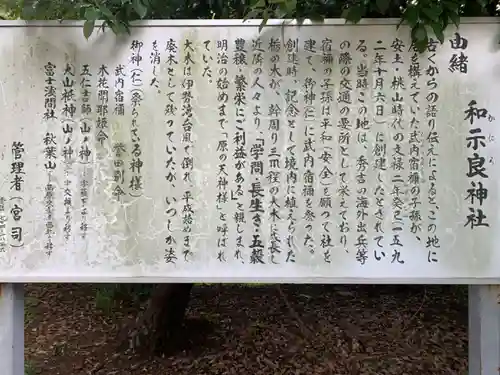 由緒
和示良神社
かに
古くからの語り伝えによると、この地に
居を構えていた武内宿禰の子孫が、
安土・桃山時代の文禄二年癸巳(一五九
三年十月六日)に創建したとされてい
る。当時この地は、秀吉の海外出兵等
の際の交通の要所として栄えており、
宿禰の子孫は平和(安全)を願って社を
建て、御神(仁)に武内宿禰を祭った。
創建時、記念として境内に植えられた
栃の木が、幹周り 程の大木に成長し
近隣の人々より、「学問・長生き・五穀
豊穣、繁栄にご利益がある」と親しまれ、
明治の始めまで、「原の天神様」と呼ばれ
ていた。
大木は伊勢湾台風で倒れ、平成拾年まで
廃木として残っていたが、いつしか姿
を消した。
御神(仁)(祭られている神様)
武内宿禰 誉田別命
木花開耶姫命
五仁吉師(山ノ神)
大山祇神(山ノ神)
富士浅間社 秋葉山
管理者(宮司)